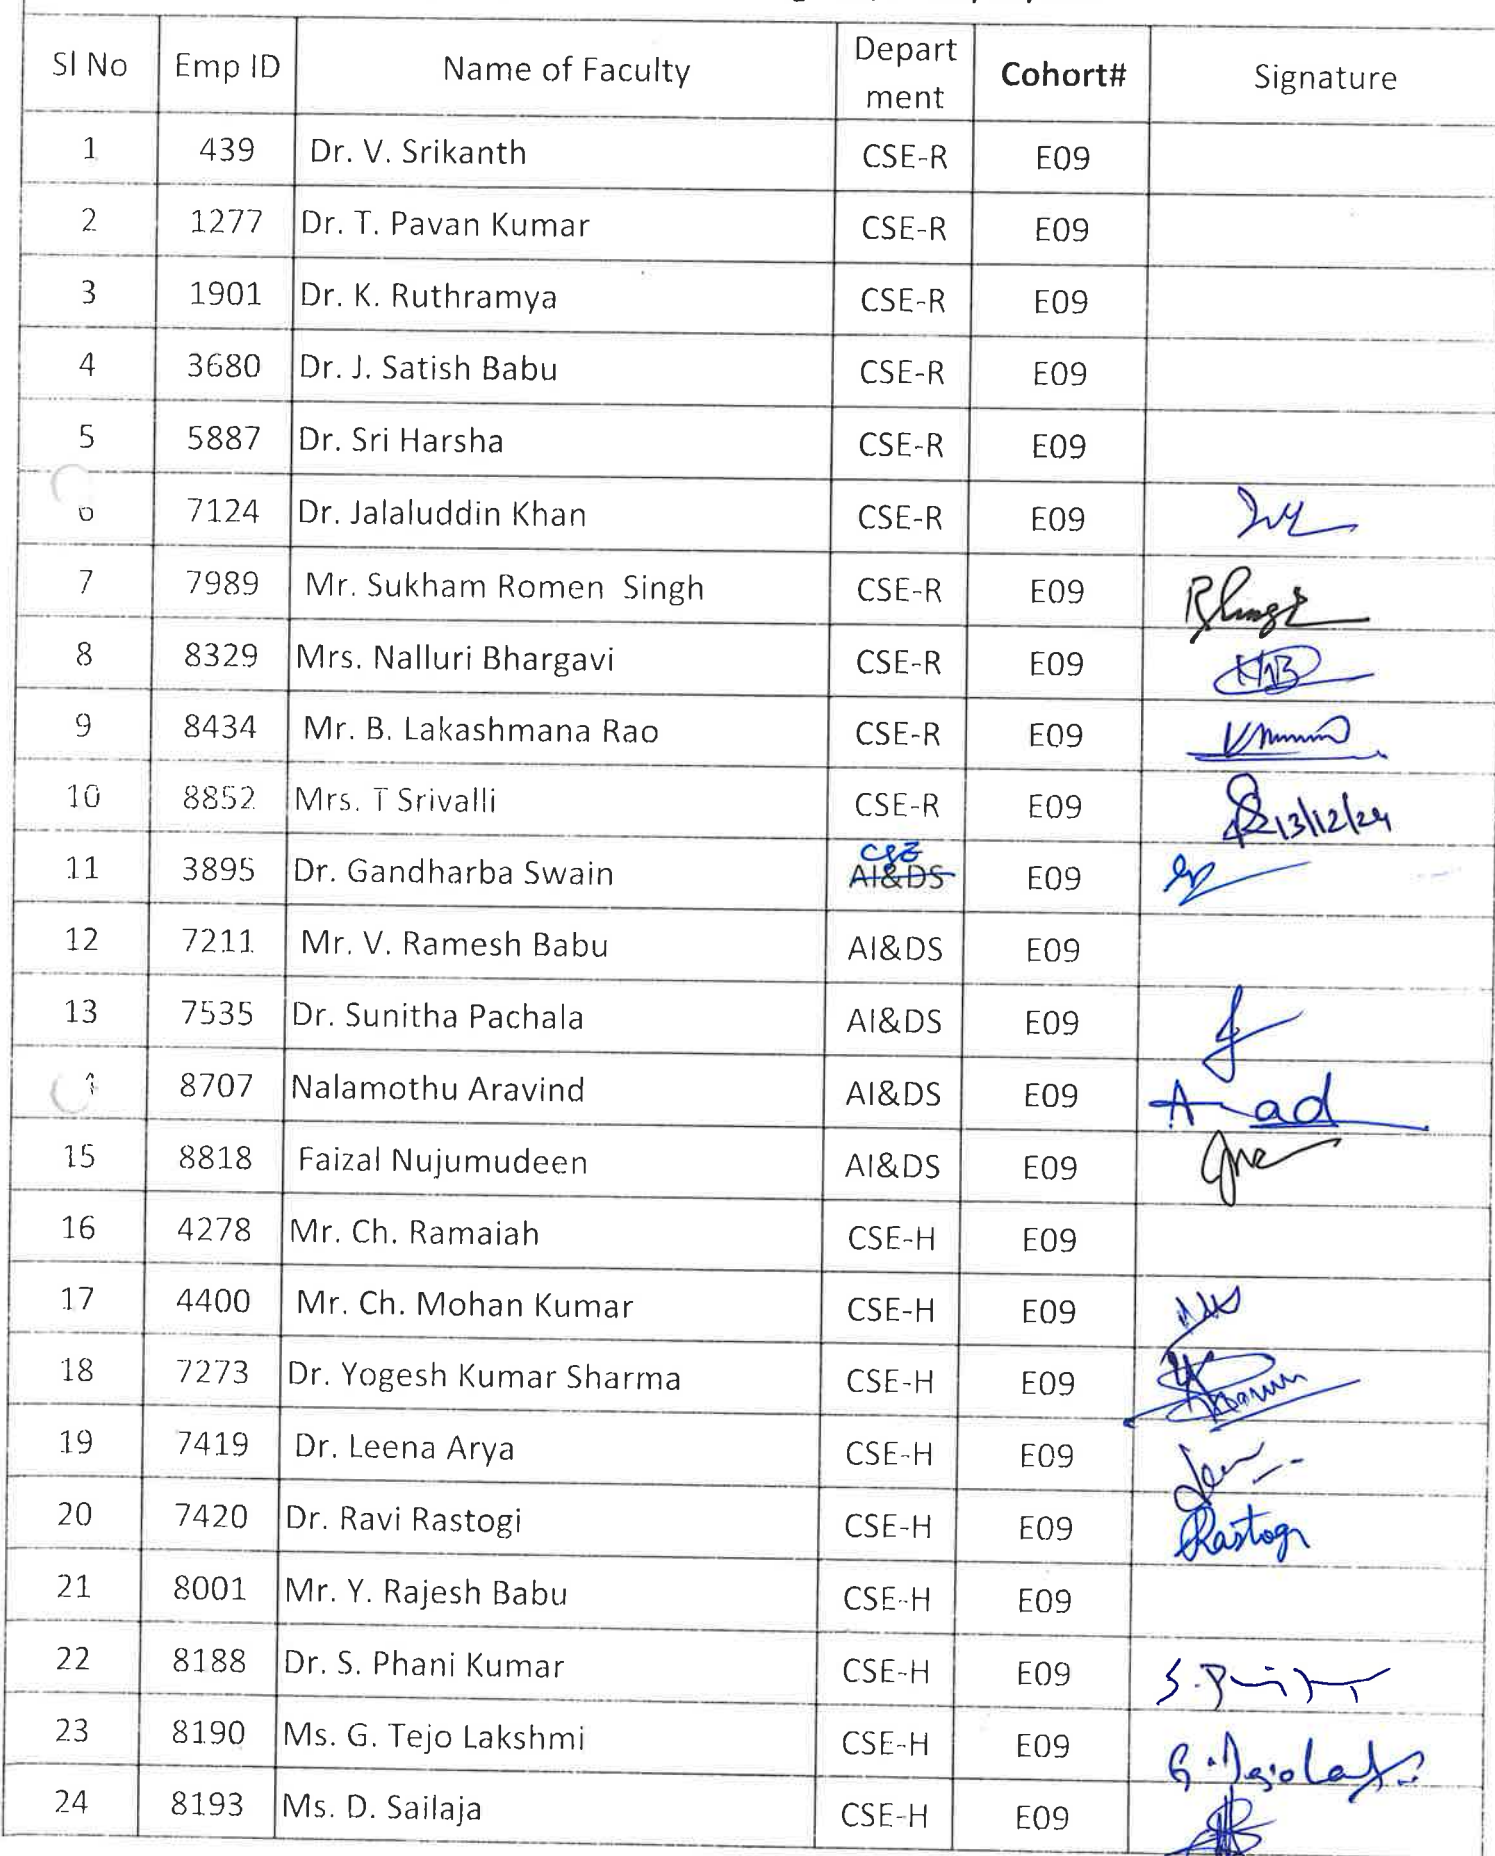 Sl No Emp ID Name of Faculty Depart ment Cohort# Signature
1 439 Dr. V. Srikanth CSE-R E09
2 1277 Dr. T. Pavan Kumar CSE-R E09
3 1901 Dr. K. Ruthramya CSE-R E09
4 3680 Dr. J. Satish Babu CSE-R E09
5 5887 Dr. Sri Harsha CSE-R E09
6 7124 Dr. Jalaluddin Khan CSE-R E09
7 7989 Mr. Sukham Romen Singh CSE-R E09
8 8329 Mrs. Nalluri Bhargavi CSE-R E09 NB
9 8434 Mr. B. Lakashmana Rao CSE-R E09
10 8852 Mrs. T Srivalli CSE-R E09 13/12/24
11 3895 Dr. Gandharba Swain CSE AI&DS E09
12 7211 Mr. V. Ramesh Babu AI&DS E09
13 7535 Dr. Sunitha Pachala AI&DS E09
8707 Nalamothu Aravind AI&DS E09
15 8818 Faizal Nujumudeen AI&DS E09
16 4278 Mr. Ch. Ramaiah CSE-H E09
17 4400 Mr. Ch. Mohan Kumar CSE-H E09
18 7273 Dr. Yogesh Kumar Sharma CSE-H E09
19 7419 Dr. Leena Arya CSE-H E09
20 7420 Dr. Ravi Rastogi CSE-H E09 Rastogi
21 8001 Mr. Y. Rajesh Babu CSE-H E09
22 8188 Dr. S. Phani Kumar CSE-H E09
23 8190 Ms. G. Tejo Lakshmi CSE-H E09
24 8193 Ms. D. Sailaja CSE-H E09